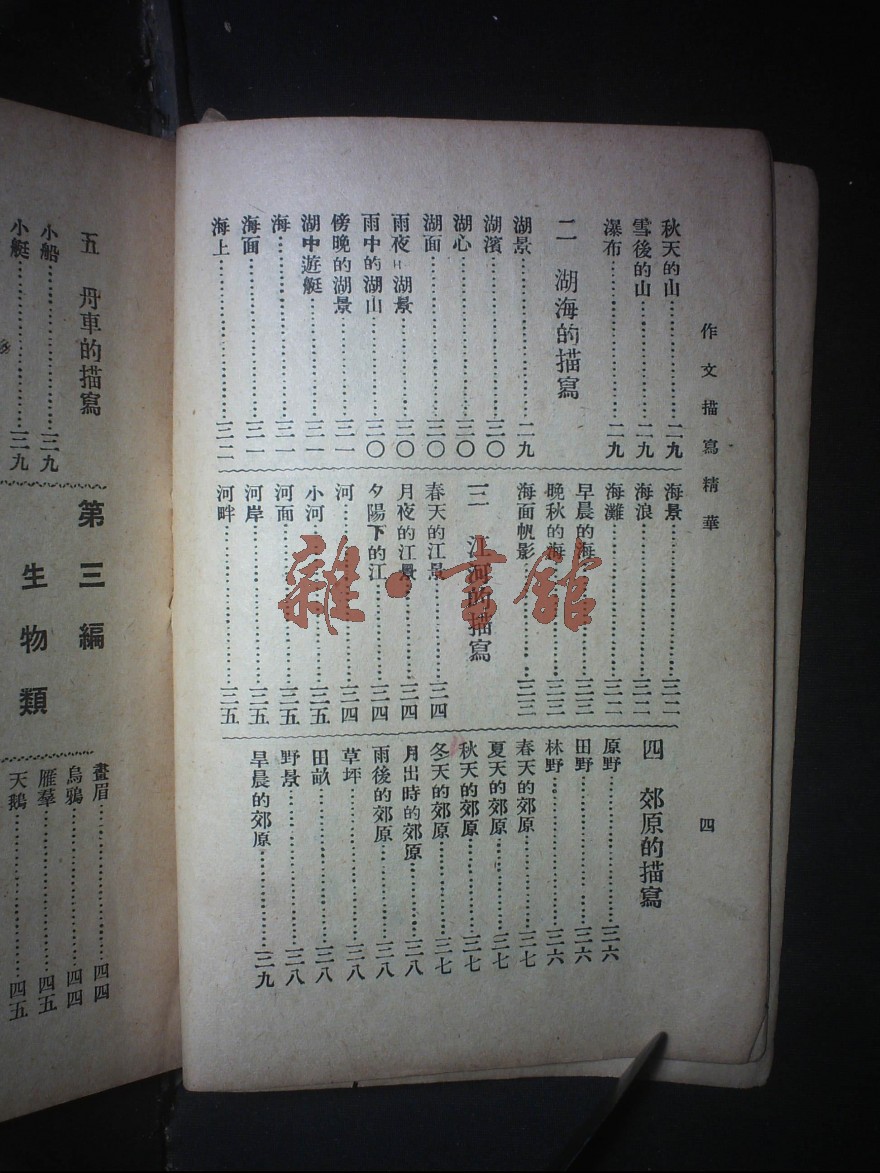 作文描寫精華
四
秋天的山……二九
雪後的山……二九
瀑布……二九
二 湖海的描寫
湖景……二九
湖濱……三〇
湖心……三〇
湖面……三〇
雨夜 湖景……三〇
雨中的湖山……三〇
傍晚的湖景……三一
湖中遊艇……三一
海……三一
海面……三一
海上……三二
海景……三二
海浪……三二
海灘……三二
早晨的海……三三
晚秋的海……三三
海面帆影……三三
三 江河的描寫
春天的江景……三四
月夜的江景……三四
夕陽下的江……三四
河……三四
小河……三五
河面……三五
河岸……三五
河畔……三五
四 郊原的描寫
原野……三六
田野……三六
林野……三六
春天的郊原……三七
夏天的郊原……三七
秋天的郊原……三七
冬天的郊原……三七
月出時的郊原……三八
雨後的郊原……三八
草坪……三八
田畝……三八
野景……三八
早晨的郊原……三九
五 舟車的描寫
小船……三九
小艇……三九
第三編
生物類
畫眉……四四
烏鴉……四四
雁羣……四五
天鵝……四五
雜·書館